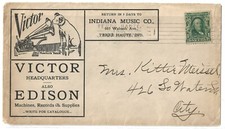 Victor
RETURN IN 5 DAYS TO
INDIANA MUSIC CO.,
TERRE HAUTE, IND.
VICTOR
HEADQUARTERS
ALSO
EDISON
Machines, Records & Supplies
WRITE FOR CATALOGUE
Mrs. Kitter Meissel
426 So
City.